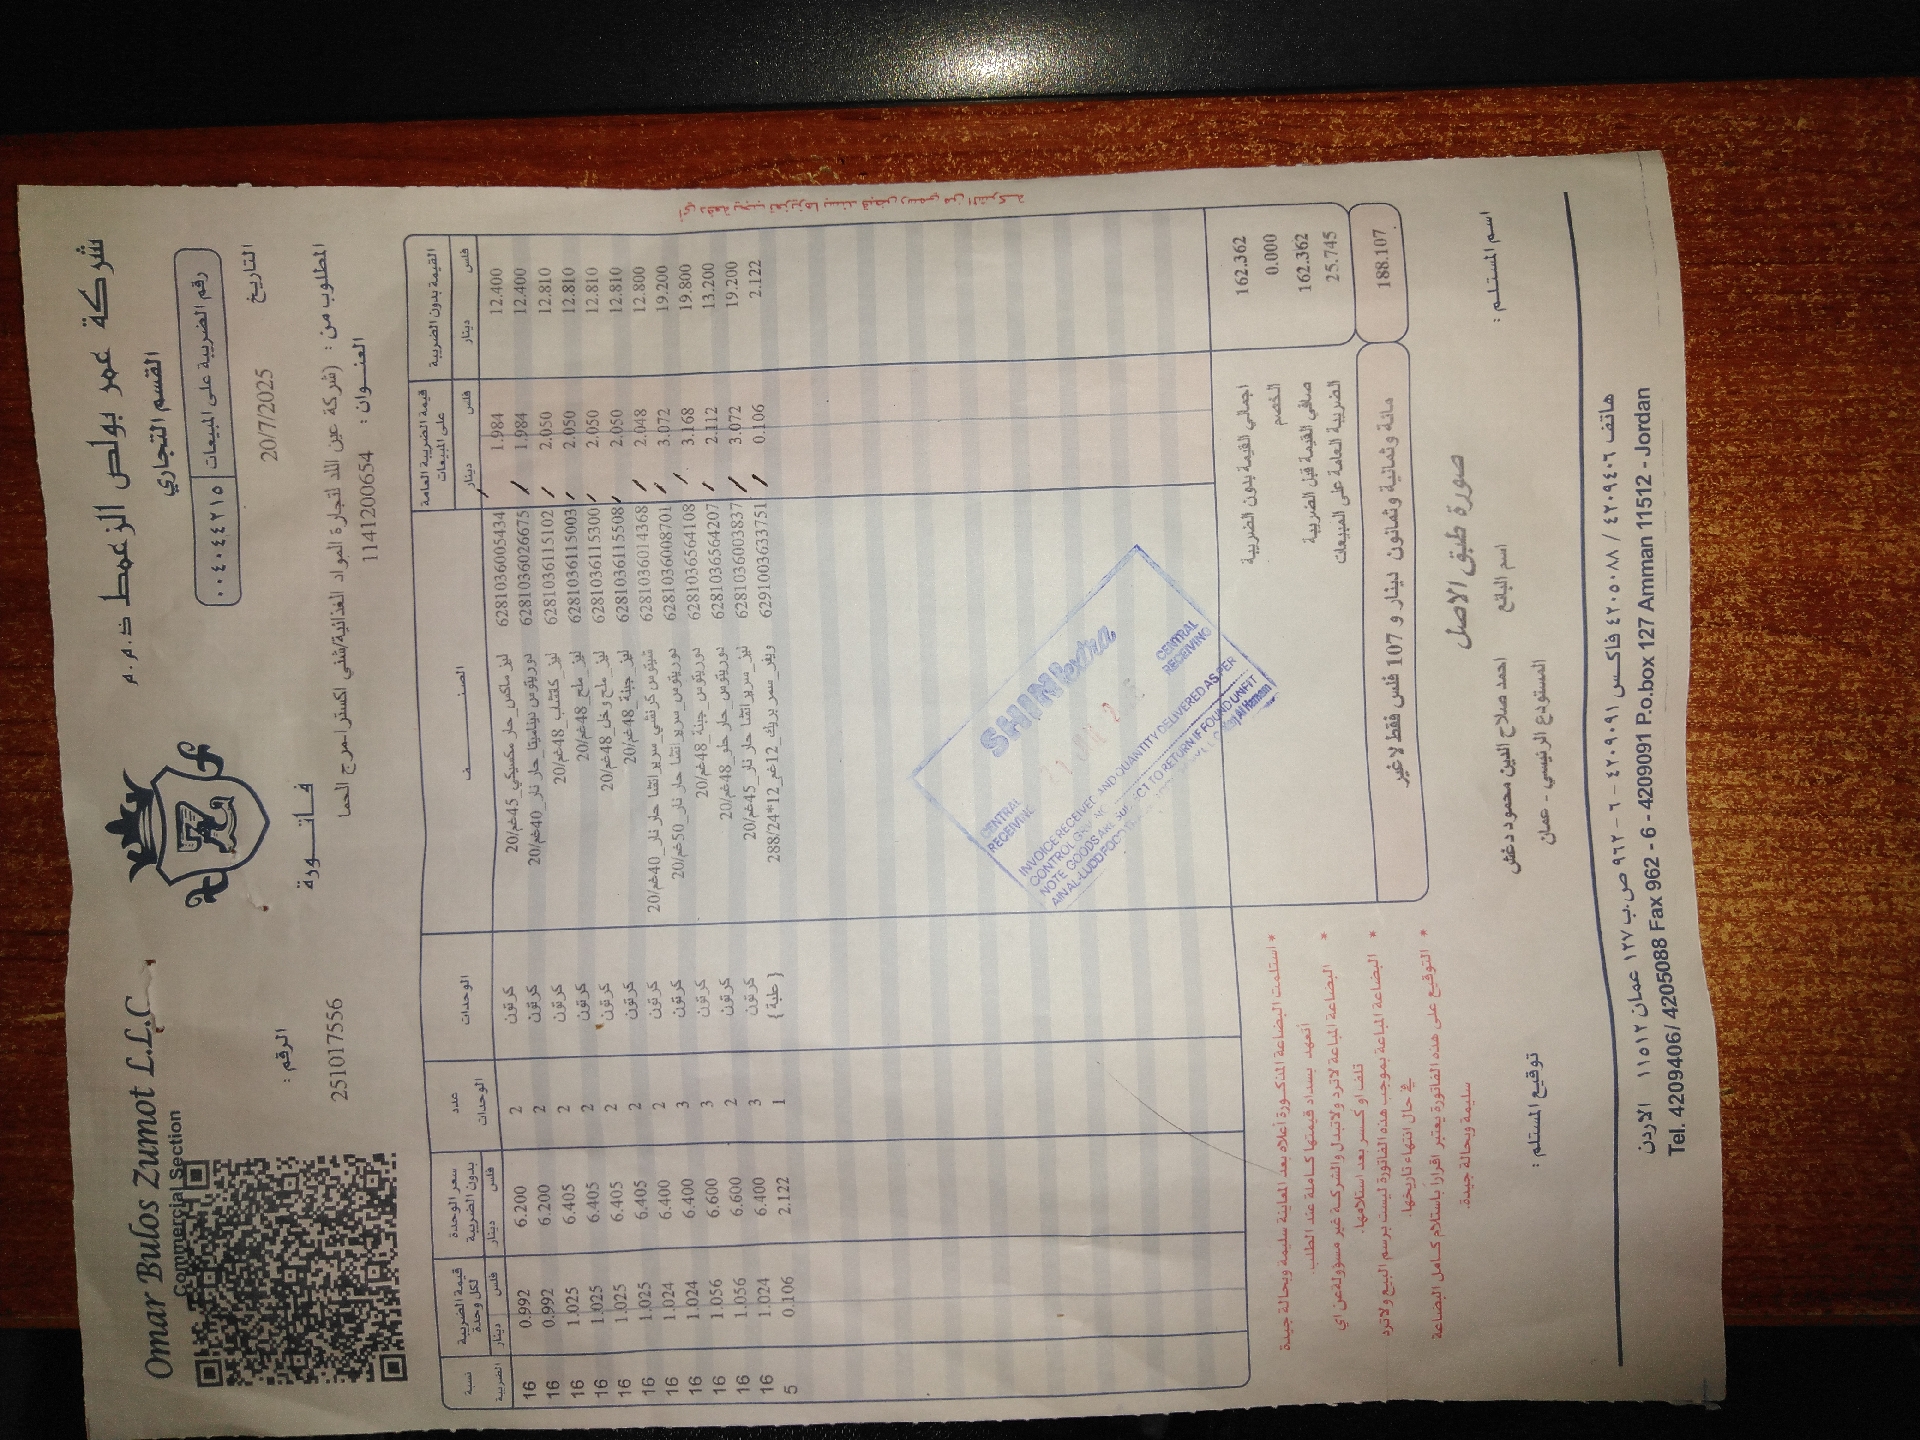 شركة عمر بولص الزعمط ذ.م.م.
القسم التجاري
Omar Bulos Zumot L.L.C
Commercial Section
رقم الضريبة على المبيعات ٠٠٤٠٤٤٢١٥
التاريخ 20/7/2025
فاتورة
الرقم :
251017556
المطلوب من : (شركة عين اللد لتجارة المواد الغذائية/شني اكسترا-مرج الحمام
العنوان : 1141200654
القيمة بدون الضريبة قيمة الضريبة العامة على المبيعات الصنف الوحدات عدد الوحدات سعر الوحدة بدون الضريبة قيمة الضريبة لكل وحدة نسبة الضريبة
فلس دينار فلس دينار فلس دينار فلس دينار
12.400 1.984 6281036005434 ليز ماكس_حار مكسيكي_45غم/20 كرتون 2 6.200 0.992 16
12.400 1.984 6281036026675 دوريتوس ديناميتا_حار نار_40غم/20 كرتون 2 6.200 0.992 16
12.810 2.050 6281036115102 ليز_كتشب_48غم/20 كرتون 2 6.405 1.025 16
12.810 2.050 6281036115003 ليز_ملح_48غم/20 كرتون 2 6.405 1.025 16
12.810 2.050 6281036115300 ليز_ملح وخل_48غم/20 كرتون 2 6.405 1.025 16
12.810 2.050 6281036115508 ليز_جبنة_48غم/20 كرتون 2 6.405 1.025 16
12.800 2.048 6281036014368 شيتوس كرنشي_سريراتشا حار نار_40غم/20 كرتون 2 6.400 1.024 16
19.200 3.072 6281036008701 دوريتوس_سريراتشا حار نار_50غم/20 كرتون 3 6.400 1.024 16
19.800 3.168 6281036564108 دوريتوس_جبنة_48غم/20 كرتون 3 6.600 1.056 16
13.200 2.112 6281036564207 دوريتوس_حار حلو_48غم/20 كرتون 2 6.600 1.056 16
19.200 3.072 6281036003837 ليز_سريراتشا حار نار_45غم/20 كرتون 3 6.400 1.024 16
2.122 0.106 6291003633751 ويفر_سمر بريك_12غم_12*24/288 {طبة} 1 2.122 0.106 5
162.362 اجمالي القيمة بدون الضريبة
0.000 الخصم
162.362 صافي القيمة قبل الضريبة
25.745 الضريبة العامة على المبيعات
188.107 مائة وثمانية وثمانون دينار و 107 فلس فقط لاغير
SHINIextra
CENTRAL RECEIVING
CENTRAL RECEIVING
INVOICE RECEIVED AND QUANTITY DELIVERED AS PER
NOTE GOODS ARE SUBJECT TO RETURN IF FOUND UNFIT
* استلمت البضاعة المذكورة أعلاه بعد المعاينة سليمة وبحالة جيدة
اتعهد بسداد قيمتها كاملة عند الطلب.
* البضاعة المباعة لاترد ولاتبدل والشركة غير مسؤولة عن اي
تلف او كسر بعد استلامها.
* البضاعة المباعة بموجب هذه الفاتورة ليست برسم البيع ولاترد
في حال انتهاء تاريخها.
* التوقيع على هذه الفاتورة يعتبر اقراراً باستلام كامل البضاعة
سليمة وبحالة جيدة.
صورة طبق الاصل
اسم المستلم :
اسم البائع
احمد صلاح الدين محمود دغش
المستودع الرئيسي - عمان
توقيع المستلم :
هاتف ٤٢٠٩٤٠٦ / ٤٢٠٥٠٨٨ فاكس ٤٢٠٩٠٩١ - ٦ - ٩٦٢ ص.ب ١٢٧ عمان ١١٥١٢ الاردن
Tel. 4209406/ 4205088 Fax 962 - 6 - 4209091 P.o.box 127 Amman 11512 - Jordan